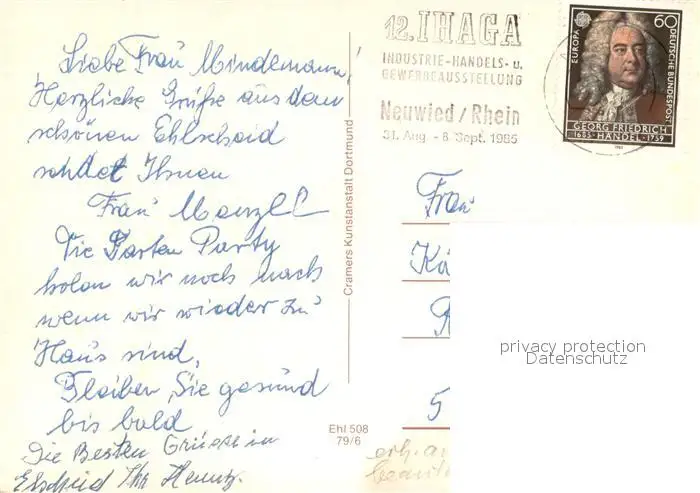 Liebe Frau Mindemann,
Herzliche Grüße aus dem
schönen Ehlscheid
sendet Ihnen
Frau
Die Garten Party
holen wir noch nach
wenn wir wieder zu
Haus sind,
Bleiben Sie gesund
bis bald
Die Besten Grüsse in
Elscheid Ihr
Cramers Kunstanstalt Dortmund
Ehl 508
79/6
12. IHAGA
INDUSTRIE-HANDELS- u.
GEWERBEAUSSTELLUNG
Neuwied / Rhein
31. Aug. - 8. Sept. 1985
EUROPA
60
DEUTSCHE BUNDESPOST
GEORG FRIEDRICH
1685 · HÄNDEL · 1759
Frau
Kä
5
privacy protection
Datenschutz
erh. a